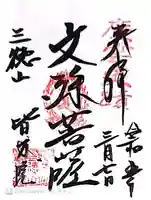 奉拝
令和
三月七日
文殊菩薩
三徳山
皆成院